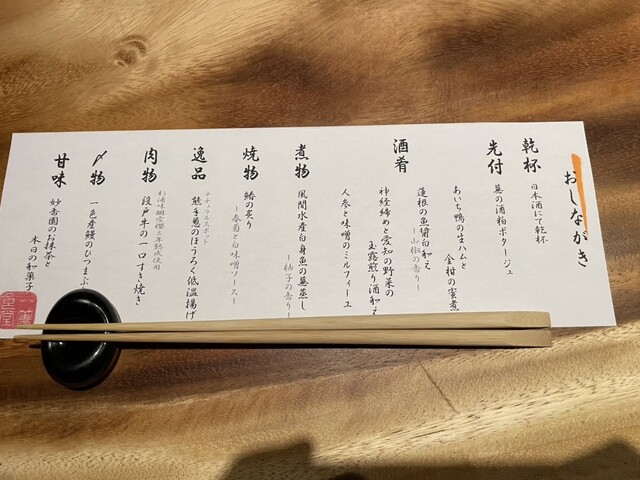 おしながき
乾杯
日本酒にて乾杯
先付
蕪の酒粕ポタージュ
あいち鴨の生ハムと
金柑の蜜煮
酒肴
蓮根の魚醤白和え
ー山椒の香りー
神経締めと愛知の野菜の
玉露煎り酒和え
人参と味噌のミルフィーユ
煮物
風間水産白身魚の蕪蒸し
ー柚子の香りー
焼物
鰆の炙り
ー春菊と白味噌ソースー
逸品
ナチュラルスポット
熊手葱のほうろく低温揚げ
肉物
段戸牛の一口すき焼き
〆物
一色産鰻のひつまぶし
甘味
妙香園のお抹茶と
本日の和菓子